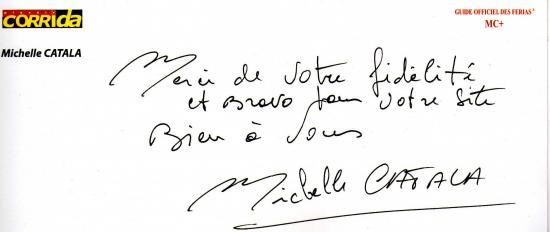 CORRIDA
GUIDE OFFICIEL DES FERIAS
MC+
Michelle CATALA
Merci de votre fidélité
et Bravo pour votre site
Bien à vous
Michelle CATALA